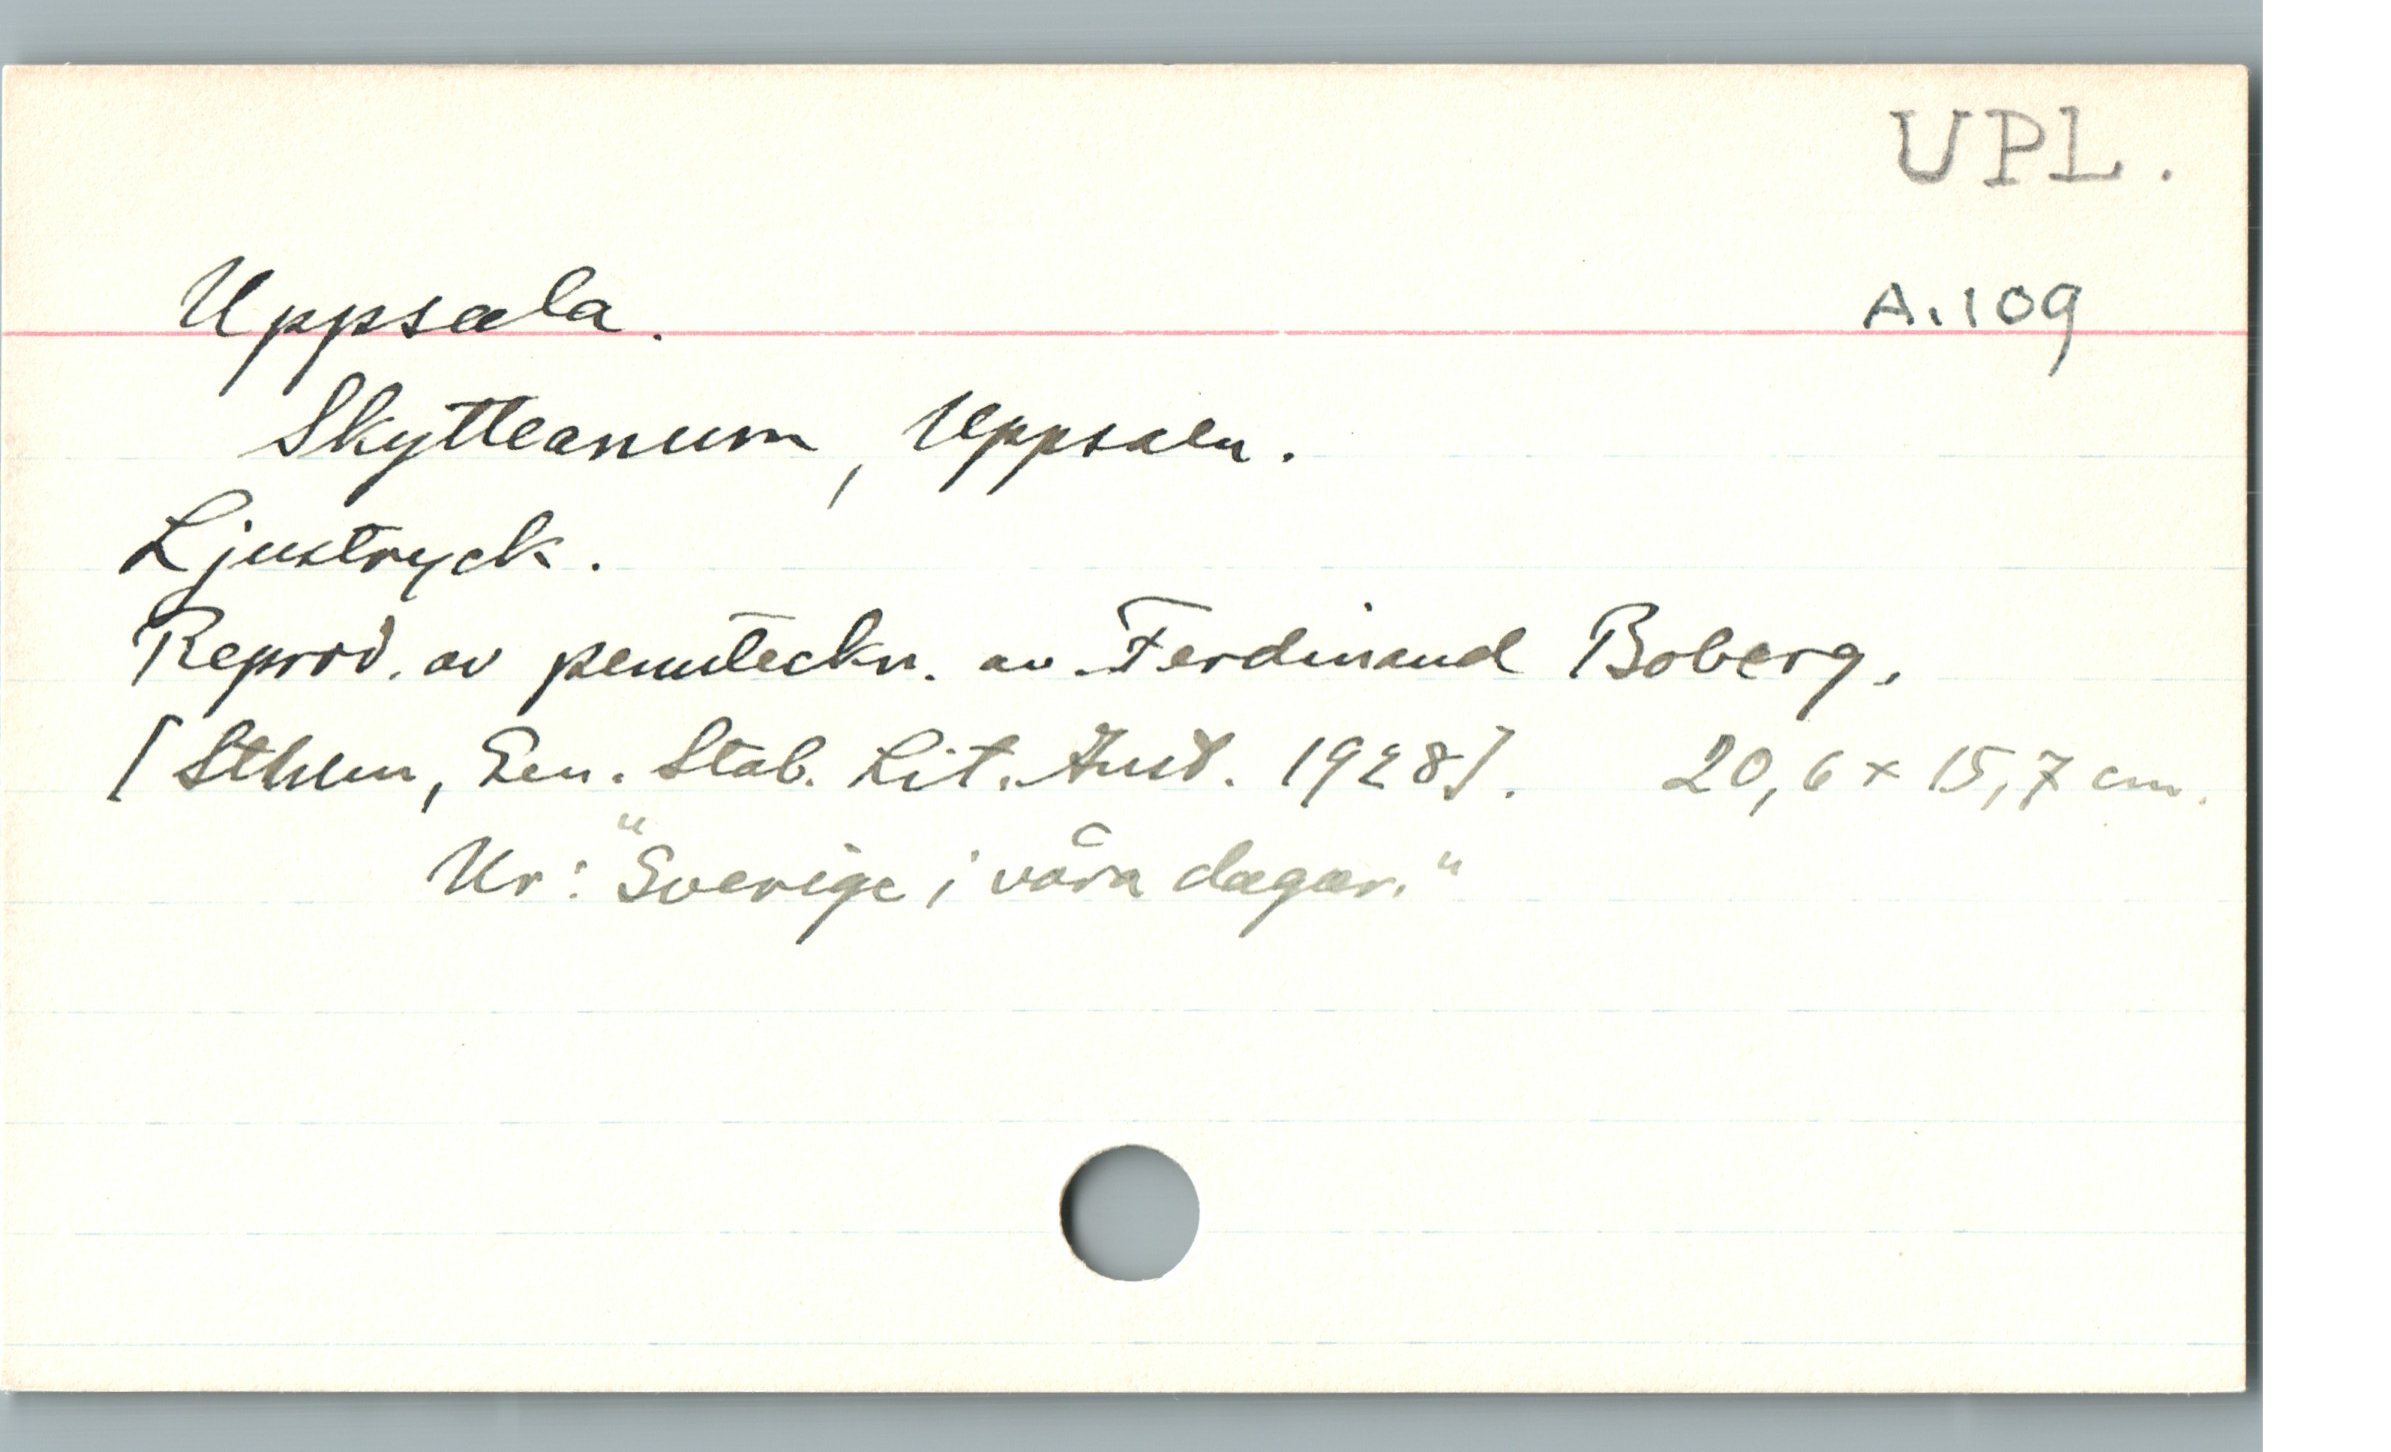 UPL.
Uppsala. A.109
Skytteanum, Uppsala.
Ljustryck.
Reprod. av pennteckn. av Ferdinand Boberg.
[Sthlm, Gen. Stab. Lit. Anst. 1928]. 20,6 x 15,7 cm.
Ur: "Sverige i våra dagar."